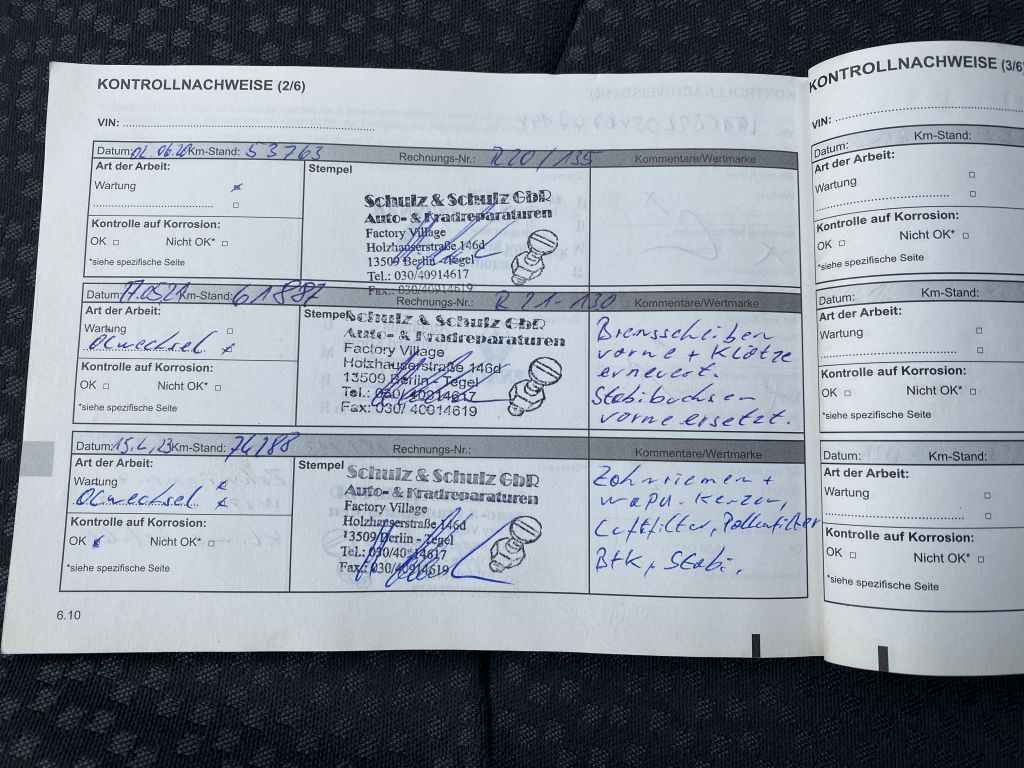 KONTROLLNACHWEISE (2/6)
VIN:
Datum: 02.06.20 Km-Stand: 53763 Rechnungs-Nr.: R20/135 Kommentare/Wertmarke
Art der Arbeit:
Wartung
Kontrolle auf Korrosion:
OK Nicht OK*
*siehe spezifische Seite
Stempel
Schulz & Schulz GbR
Auto- & Kradreparaturen
Factory Village
Holzhauserstraße 146d
13509 Berlin - Tegel
Tel.: 030/40914617
Fax.: 030/40914619
Datum: 17.05.21 Km-Stand: 61887 Rechnungs-Nr.: R21-130 Kommentare/Wertmarke
Art der Arbeit:
Wartung
Ölwechsel
Kontrolle auf Korrosion:
OK Nicht OK*
*siehe spezifische Seite
Stempel
Schulz & Schulz GbR
Auto- & Kradreparaturen
Factory Village
Holzhauserstraße 146d
13509 Berlin - Tegel
Tel.: 030/ 40914617
Fax: 030/ 40914619
Bremsscheiben
vorne + Klötze
erneuert.
Stabibuchsen
vorne ersetzt.
Datum: 15.2.23 Km-Stand: 74188 Rechnungs-Nr.: Kommentare/Wertmarke
Art der Arbeit:
Wartung
Ölwechsel
Kontrolle auf Korrosion:
OK Nicht OK*
*siehe spezifische Seite
Stempel
Schulz & Schulz GbR
Auto- & Kradreparaturen
Factory Village
Holzhauserstraße 146d
13509 Berlin - Tegel
Tel.: 030/40914617
Fax.: 030/40914619
Zahnriemen +
WaPu. Kerzen,
Luftfilter, Pollenfilter
BfK, Stabi,
6.10
KONTROLLNACHWEISE (3/6)
VIN:
Datum: Km-Stand:
Art der Arbeit:
Wartung
Kontrolle auf Korrosion:
OK Nicht OK*
*siehe spezifische Seite
Datum: Km-Stand:
Art der Arbeit:
Wartung
Kontrolle auf Korrosion:
OK Nicht OK*
*siehe spezifische Seite
Datum: Km-Stand:
Art der Arbeit:
Wartung
Kontrolle auf Korrosion:
OK Nicht OK*
*siehe spezifische Seite